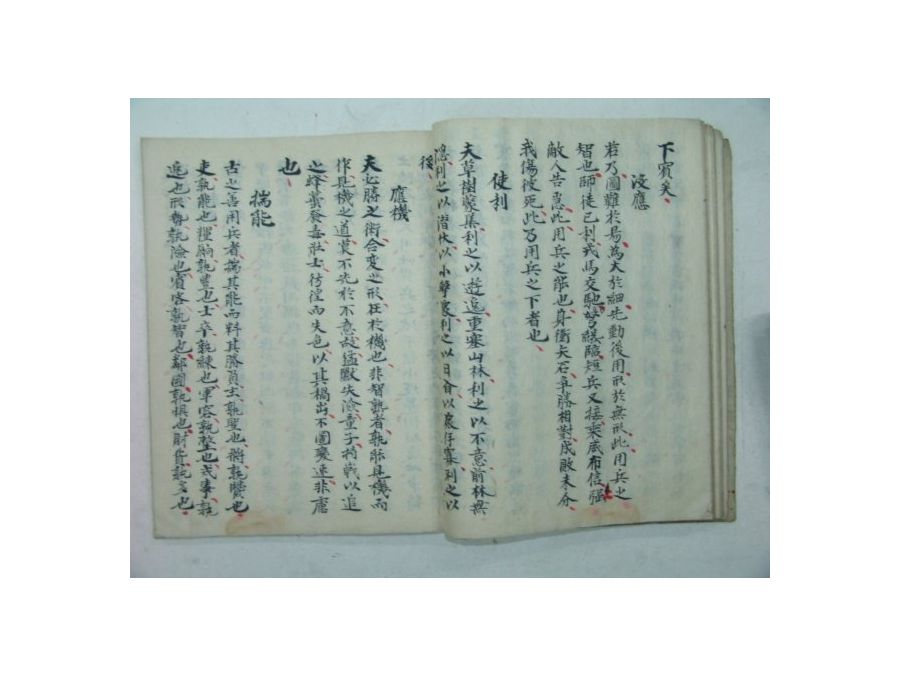 下賓矣
沒應
若乃圖難於易為大於細先動後用形於無形此用兵之
智也師徒已列戎馬交馳弩纔臨短兵又接乘威布信強
敵人告急此用兵之能也身衝矢石爭勝相對成敗未分
我傷彼死此乃用兵之下者也
使利
夫草樹蒙集利之以遊逸重塞山林利之以不意前林無
隱利之以潛伏以小擊衆利之以日昏以衆擊寡利之以
後
應機
夫必勝之術合變之形在於機也非智者孰能見機而
作見機之道莫不先於不意故猛獸失險童子持戟以追
之蜂蠆發毒壯士彷徨而失色以其禍出不圖變速非慮
也
揣能
古之善用兵者揣其能而料其勝負主孰聖也將孰賢也
吏孰能也糧餉孰豊也士卒孰練也軍容孰整也戎事孰
逸也形勢孰險也賓客孰智也鄰國孰懼也財貨孰多也